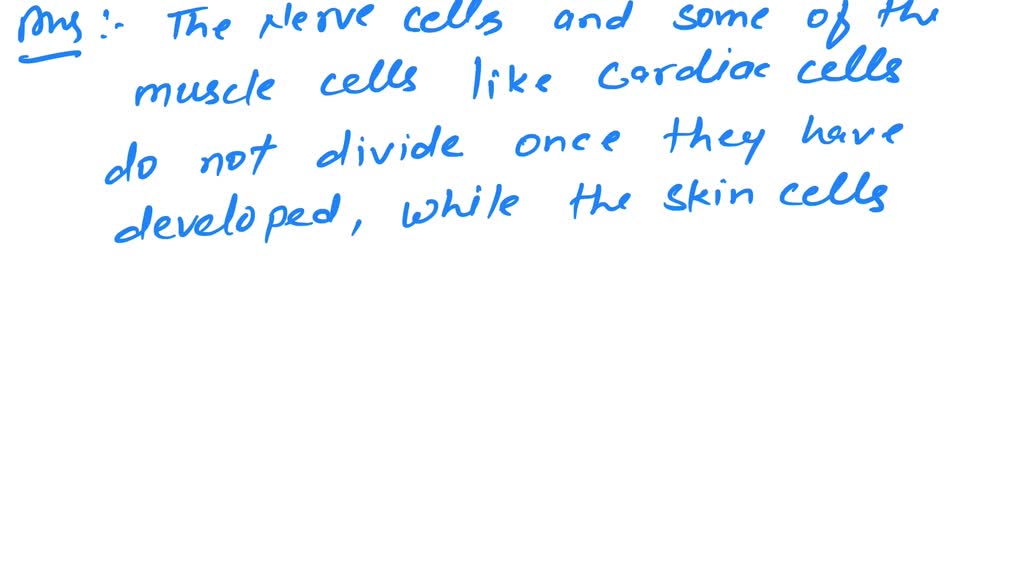 Ans :- The Nerve cells and some of the
muscle cells like cardiac cells
do not divide once they have
developed, while the skin cells